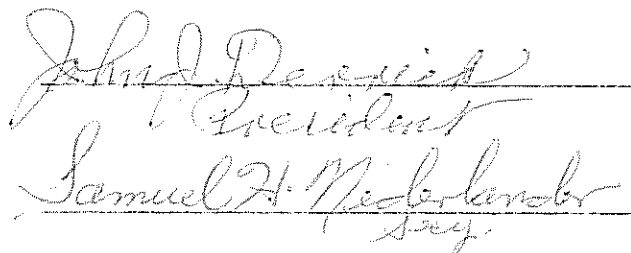 John J. Derrick
President
Samuel H. Niederlander
Secy.